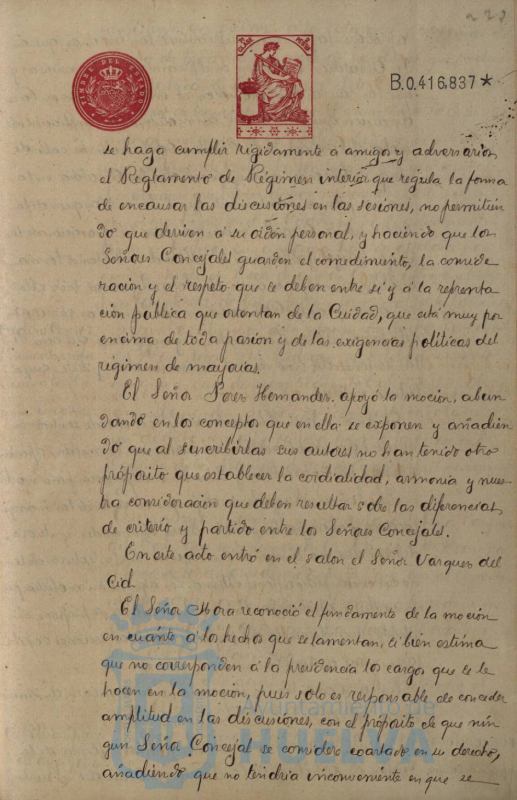 223
TIMBRE DEL ESTADO
B.0.416.837 *
se haga cumplir rigidamente á amigos y adversarios
el Reglamento de Régimen interior que regula la forma
de encausar las discusiones en las sesiones, no permitien
do que deriven á su orden personal, y haciendo que los
Señores Concejales guarden el comedimiento, la conside
ración y el respeto que se deben entre sí y á la representa
ción pública que ostentan de la Cuidad, que está muy por
encima de toda pasion y de las exigencias políticas del
régimen de mayorías.
El Señor Perez Hernandez apoyó la moción, abun
dando en los conceptos que en ella se exponen y añadien
do que al suscribirlas sus autores no han tenido otro
própósito que establecer la cordialidad, armonia y mues
tra consideracion que deben resultar sobre las diferencias
de criterio y partido entre los Señores Concejales.
En este acto entró en el salon el Señor Vazquez del
Cid.
El Señor Mora reconoció el fundamento de la moción
en cuánto á los hechos que se lamentan, si bien estima
que no corresponden á la presidencia los cargos que se le
hacen en la moción, pues solo es responsable de conceder
amplitud en las discusiones, con el própósito de que nin
gun Señor Concejal se considere coartado en su derecho,
añadiendo que no tendria inconveniente en que se
Ayuntamiento de
HUELVA